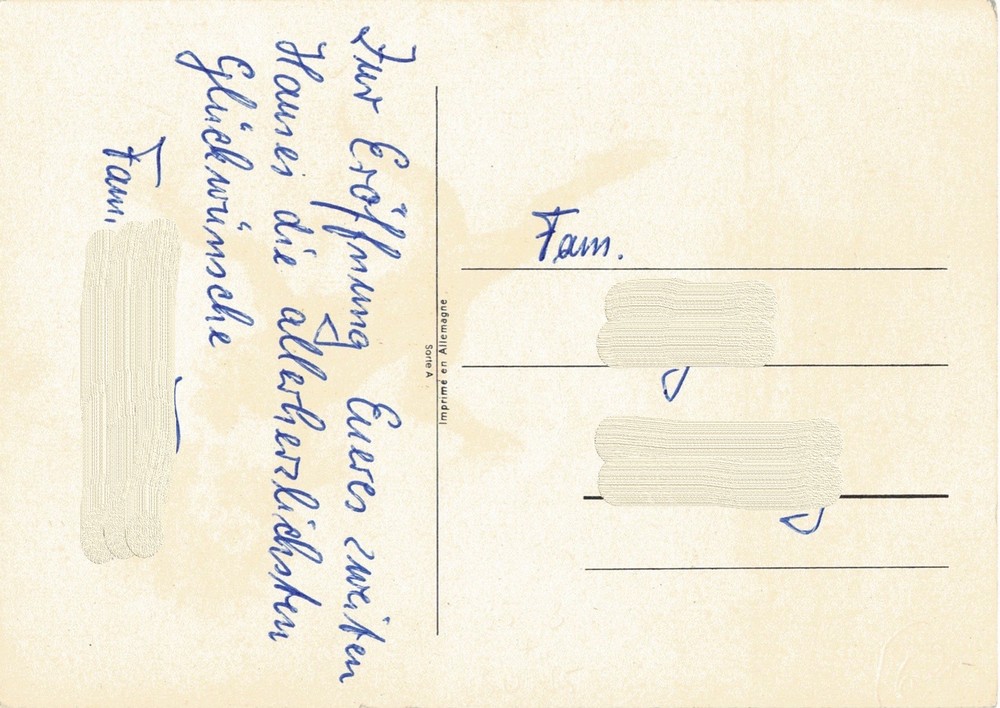 Zur Eröffnung Eueres zweiten
Hauses die allerherzlichsten
Glückwünsche
Fam.
Imprimé en Allemagne
Sorte A
Fam.